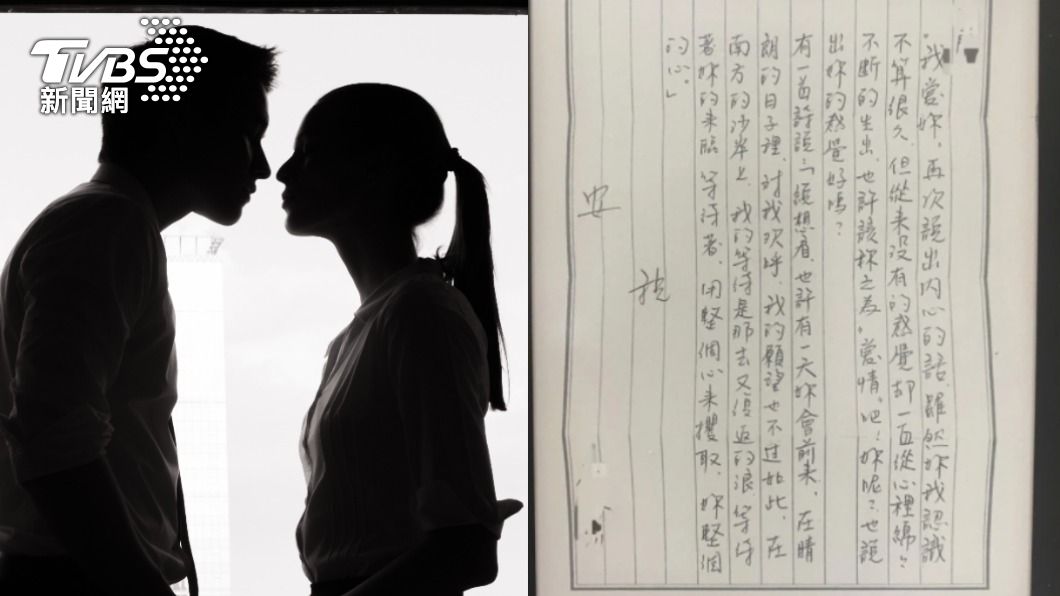 TVBS
新聞網
"我愛妳"，再次說出內心的話，雖然妳我認識
不算很久，但從来沒有的感覺却一直從心裡綿々
不斷的生出，也許該称之為"愛情"吧！妳呢？也說
出妳的感覺好嗎？
有一首詩說：「總想着，也許有一天妳會前来，在晴
朗的日子裡，对我欢呼，我的願望也不过如此，在
南方的沙岸上，我的等待是那去又復返的浪，等待
著妳的来臨，等待著，用整個心来攫取，妳整個
的心。」
祝
安